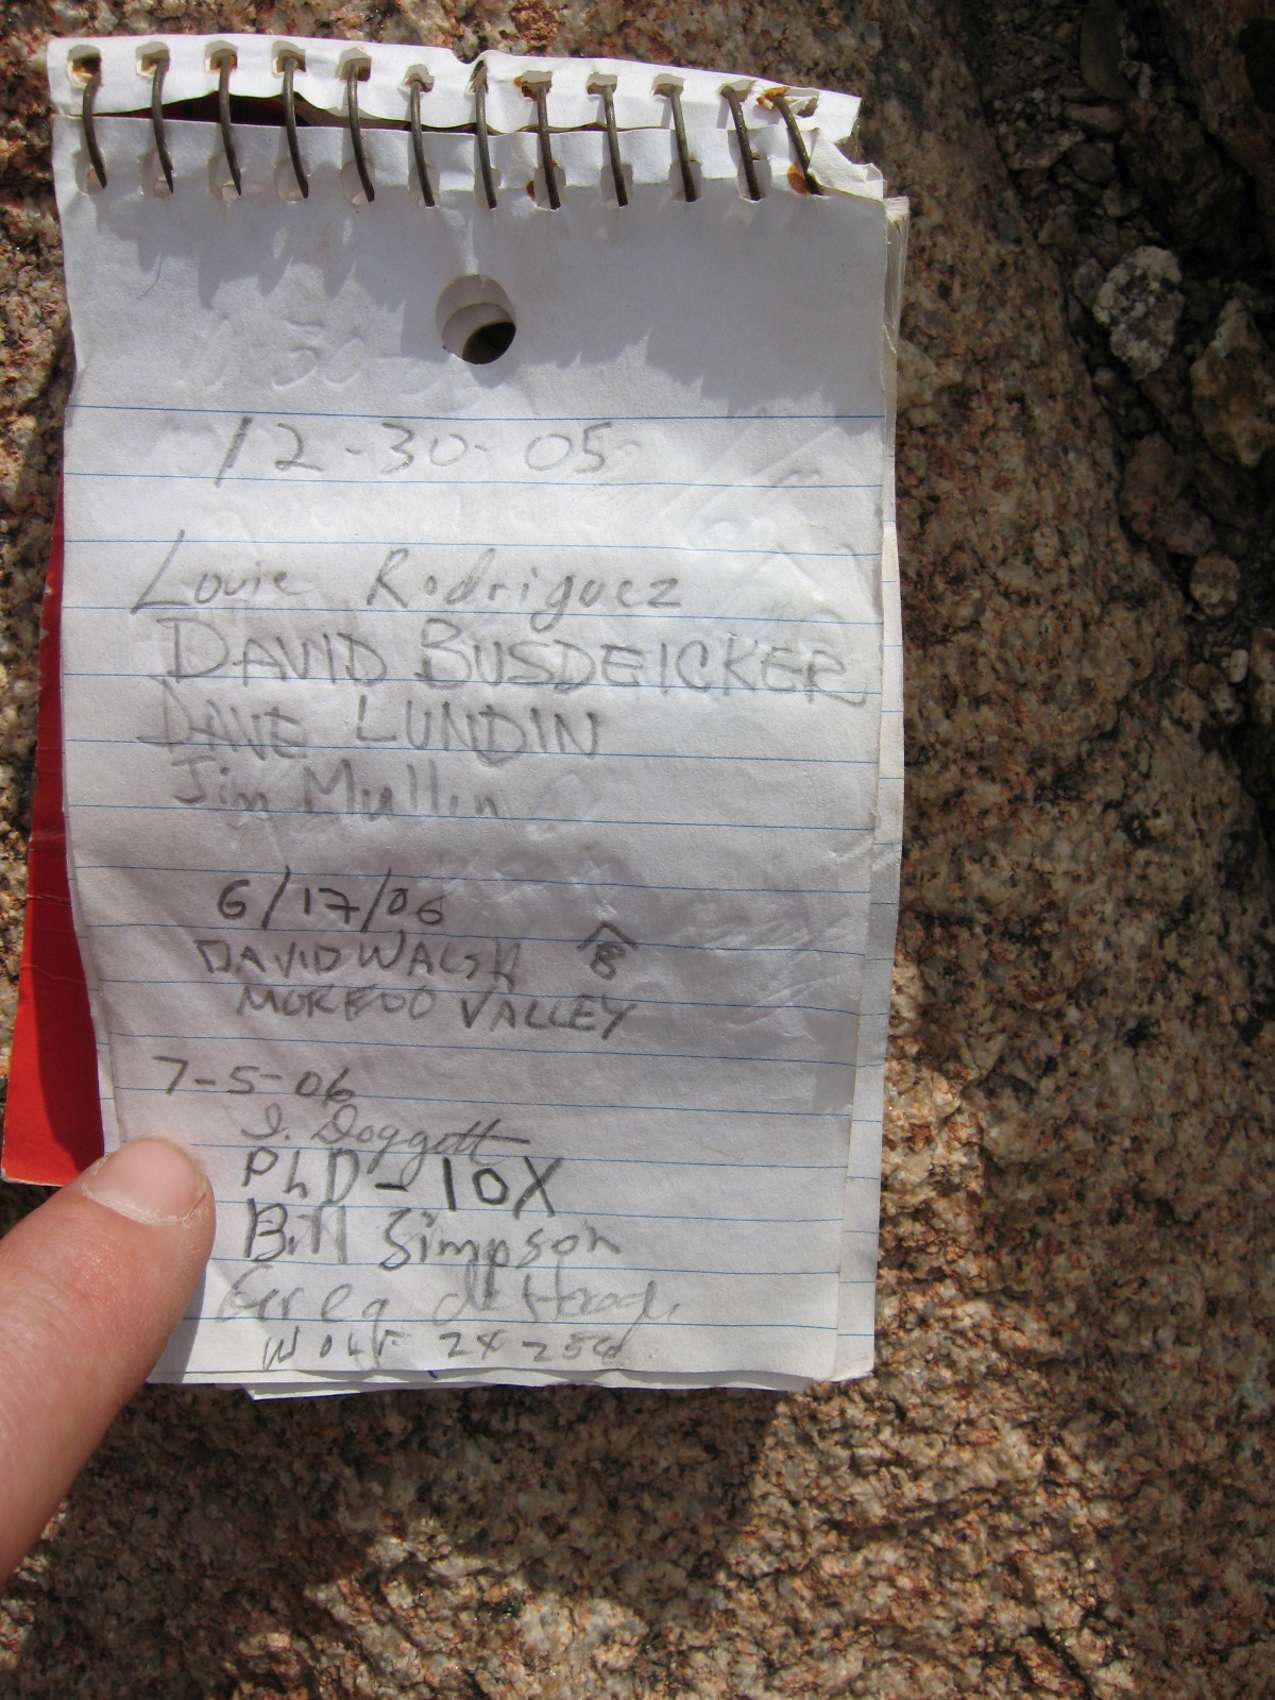 12-30-05
Louie Rodriguez
DAVID BUSDEICKER
DAVE LUNDIN
Jim Mullin
6/17/06
DAVID WALSH B
MORENO VALLEY
7-5-06
J. Doggett
PhD - 10X
Bill Simpson
Greg
WOLF 24